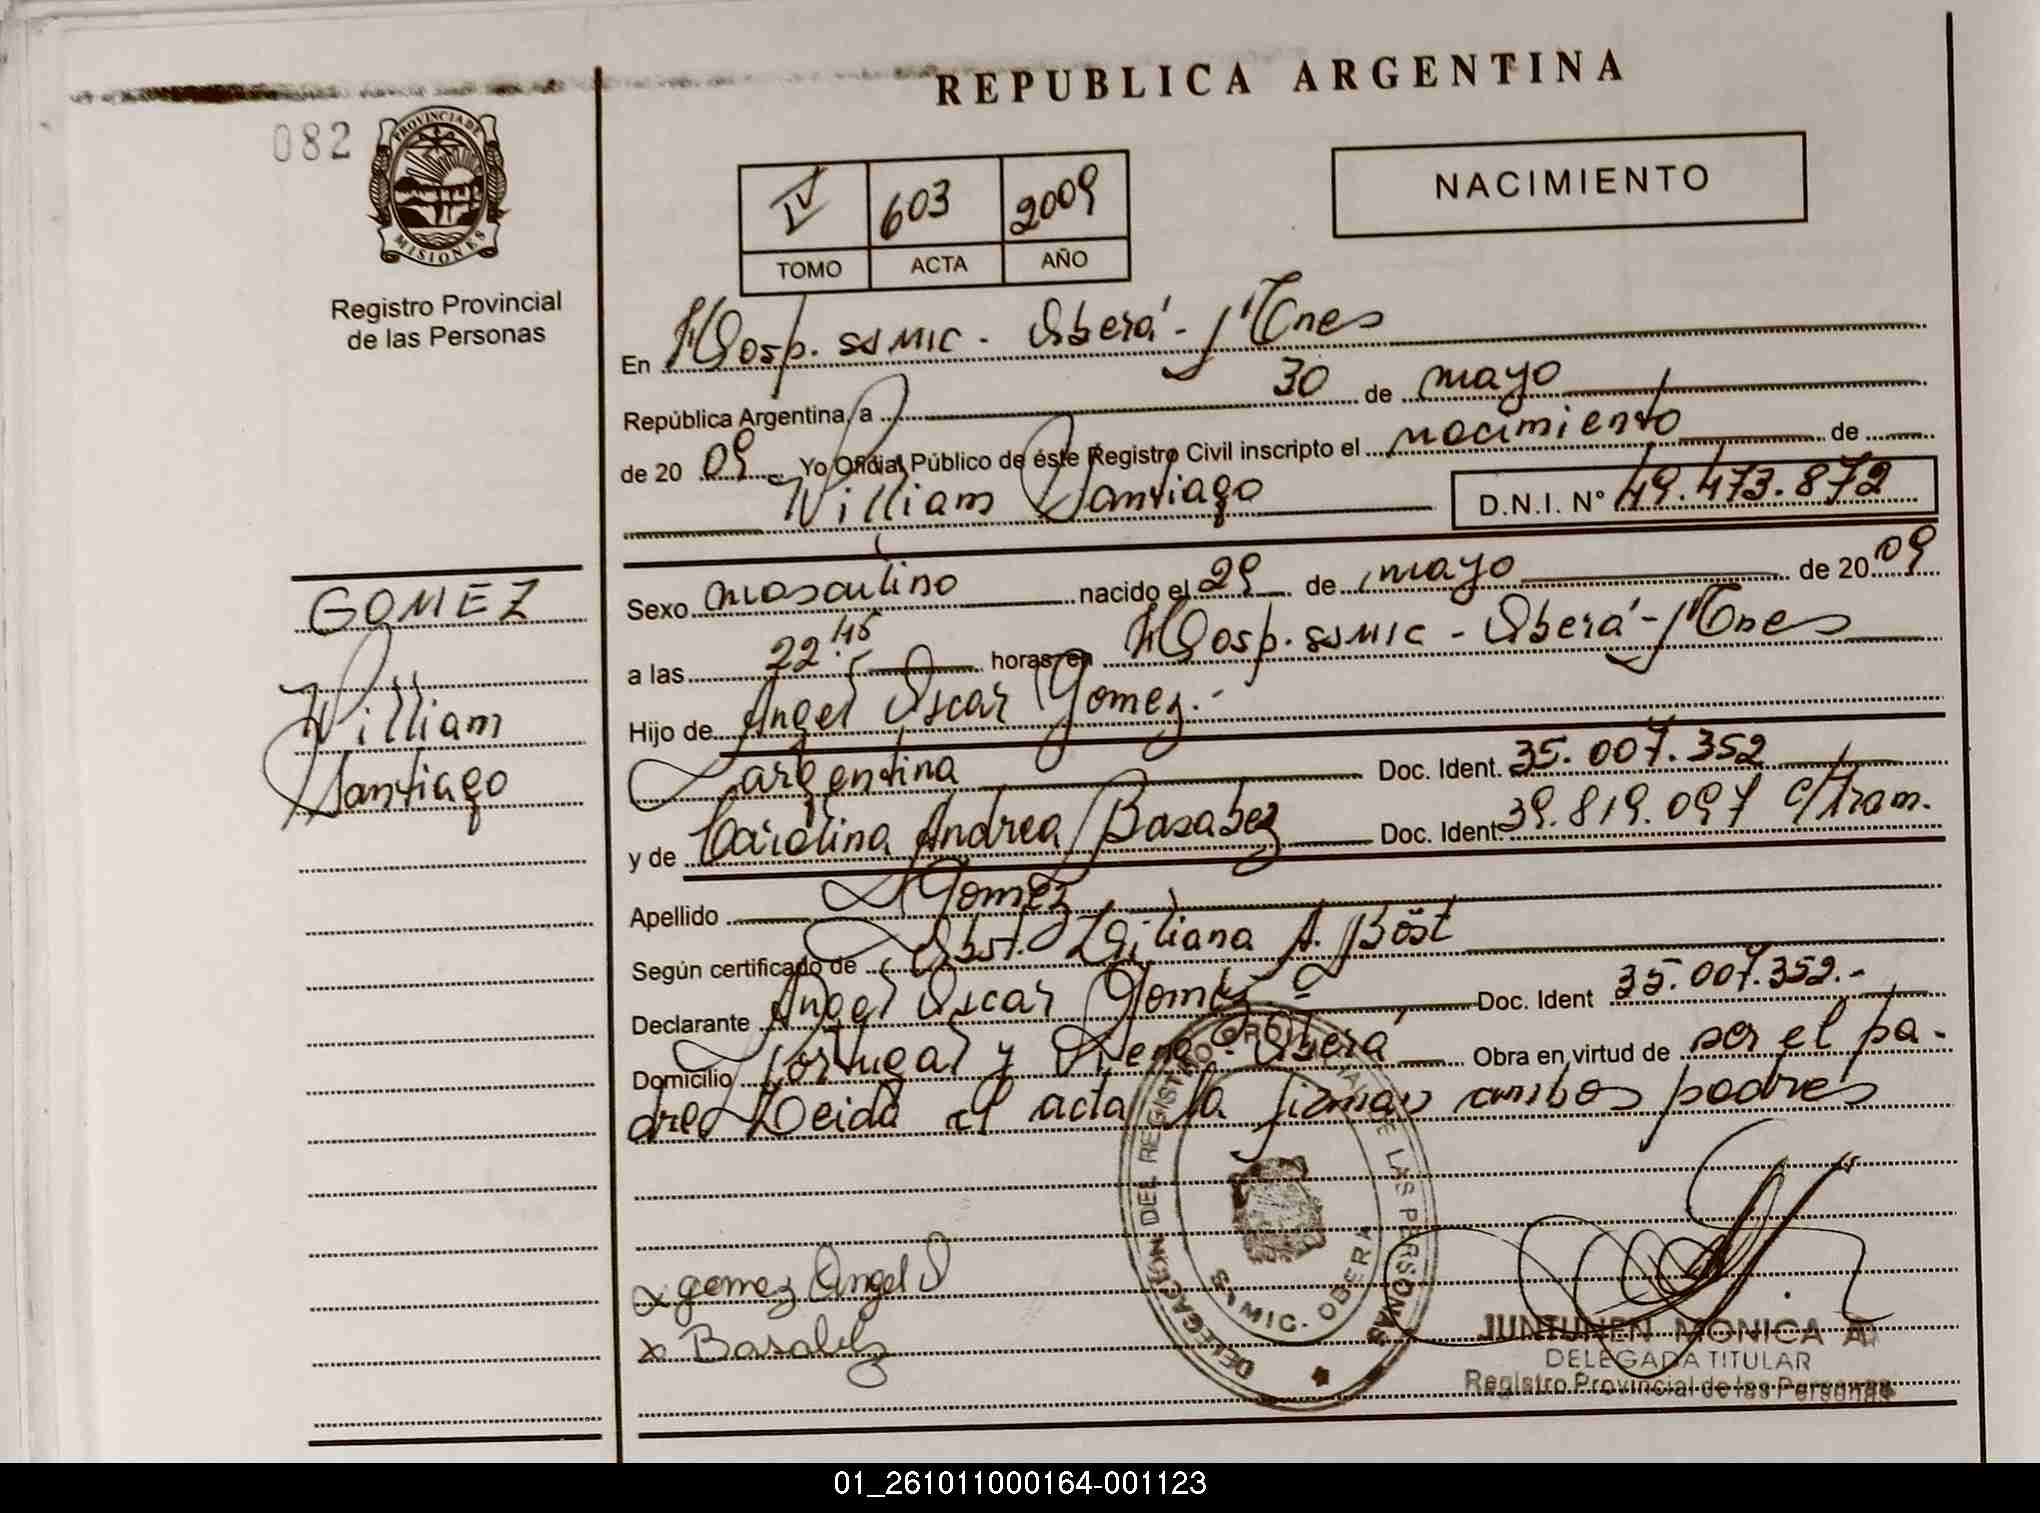 REPUBLICA ARGENTINA
082
PROVINCIA DE
MISIONES
Registro Provincial
de las Personas
IV 603 2009
TOMO ACTA AÑO
NACIMIENTO
En Hosp. SAMIC - Oberá - Mnes
República Argentina, a 30 de mayo
de 2009 Yo Oficial Público de éste Registro Civil inscripto el nacimiento de
William Santiago D.N.I. N° 49.473.872
GOMEZ
William
Santiago
Sexo masculino nacido el 29 de mayo de 2009
a las 22.45 horas en Hosp. SAMIC - Oberá - Mnes
Hijo de Angel Oscar Gomez.-
argentina Doc. Ident. 35.007.352
y de Carolina Andrea Basabez Doc. Ident 39.819.097 c/tram.
Apellido Gomez
Según certificado de Obst. Liliana A. Böst
Declarante Angel Oscar Gomez Doc. Ident 35.007.352.-
Domicilio Portugal y Viena - Oberá Obra en virtud de ser el pa-
dre Leida el acta la firman ambos padres
x gomez Angel O
x Basabez
DELEGACION DEL REGISTRO PROVINCIAL DE LAS PERSONAS
SAMIC - OBERA
JUNTUNEN MONICA A.
DELEGADA TITULAR
Registro Provincial de las Personas
01_261011000164-001123